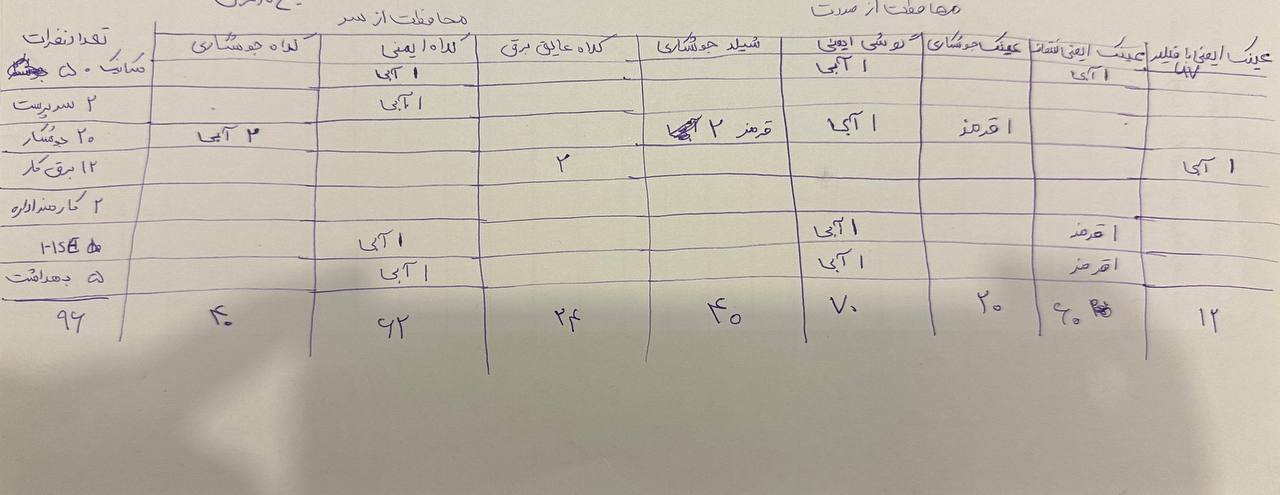 محافظت از سر محافظت از صورت
تعداد نفرات کلاه جوشکاری کلاه ایمنی کلاه عایق برق شیلد جوشکاری گوشی ایمنی عینک جوشکاری عینک ایمنی شفاف عینک ایمنی با فیلتر UV
۵۰ مکانیک ۱ آبی ۱ آبی ۱ آبی
۲ سرپرست ۱ آبی
۲۰ جوشکار ۲ آبی ۲ قرمز ۱ آبی ۱ قرمز
۱۲ برق کار ۲ ۱ آبی
۲ کارمند اداره
۵ HSE ۱ آبی ۱ آبی ۱ قرمز
۵ بهداشت ۱ آبی ۱ آبی ۱ قرمز
۹۶ ۴۰ ۶۲ ۲۴ ۴۰ ۷۰ ۲۰ ۶۰ ۱۲